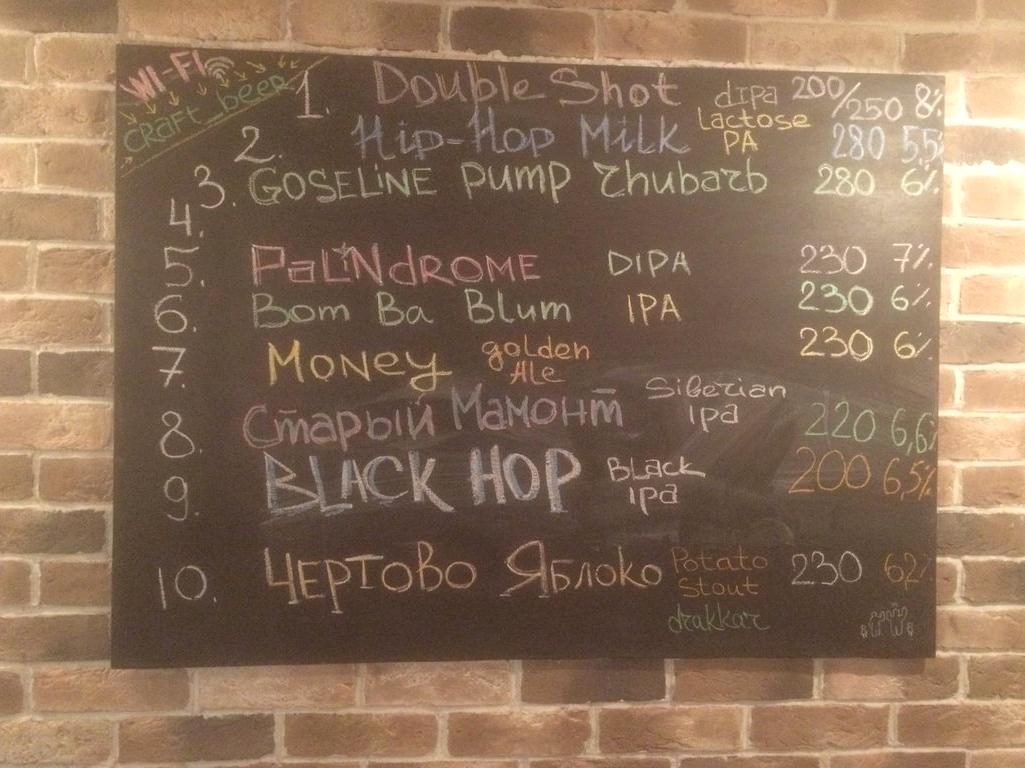 WI-FI
CRAFT beer
1. Double Shot dipa 200/250 8%
2. Hip-Hop Milk Lactose PA 280 5,5%
3. GOSELINE PUMP Rhubarb 280 6%
4.
5. PALINDROME DIPA 230 7%
6. Bom Ba Blum IPA 230 6%
7. Money golden Ale 230 6%
8. Старый Мамонт Siberian ipa 220 6,6%
9. BLACK HOP BLACK ipa 200 6,5%
10. ЧЕРТОВО ЯБЛОКО Potato Stout 230 62%
drakkar